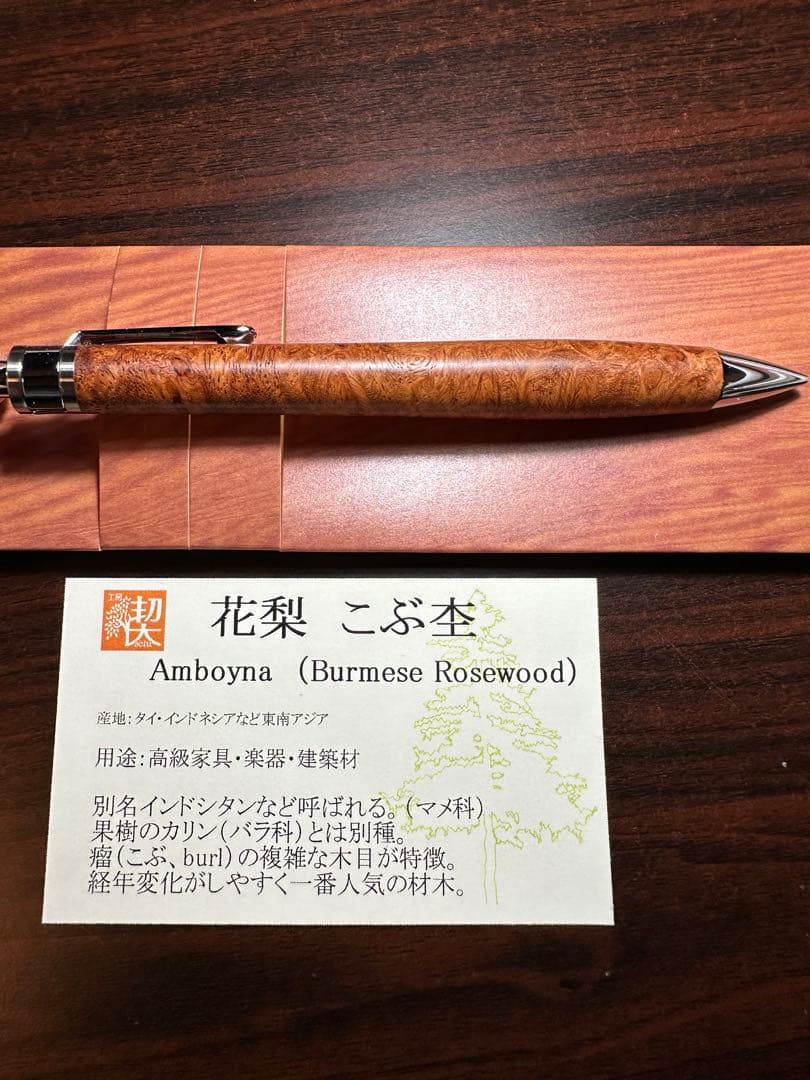 工房
楔
seTu
花梨 こぶ杢
Amboyna （Burmese Rosewood）
産地：タイ・インドネシアなど東南アジア
用途：高級家具・楽器・建築材
別名インドシタンなど呼ばれる。（マメ科）
果樹のカリン（バラ科）とは別種。
瘤（こぶ、burl）の複雑な木目が特徴。
経年変化がしやすく一番人気の材木。